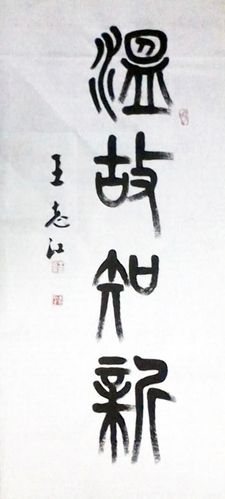 溫故知新
王志江